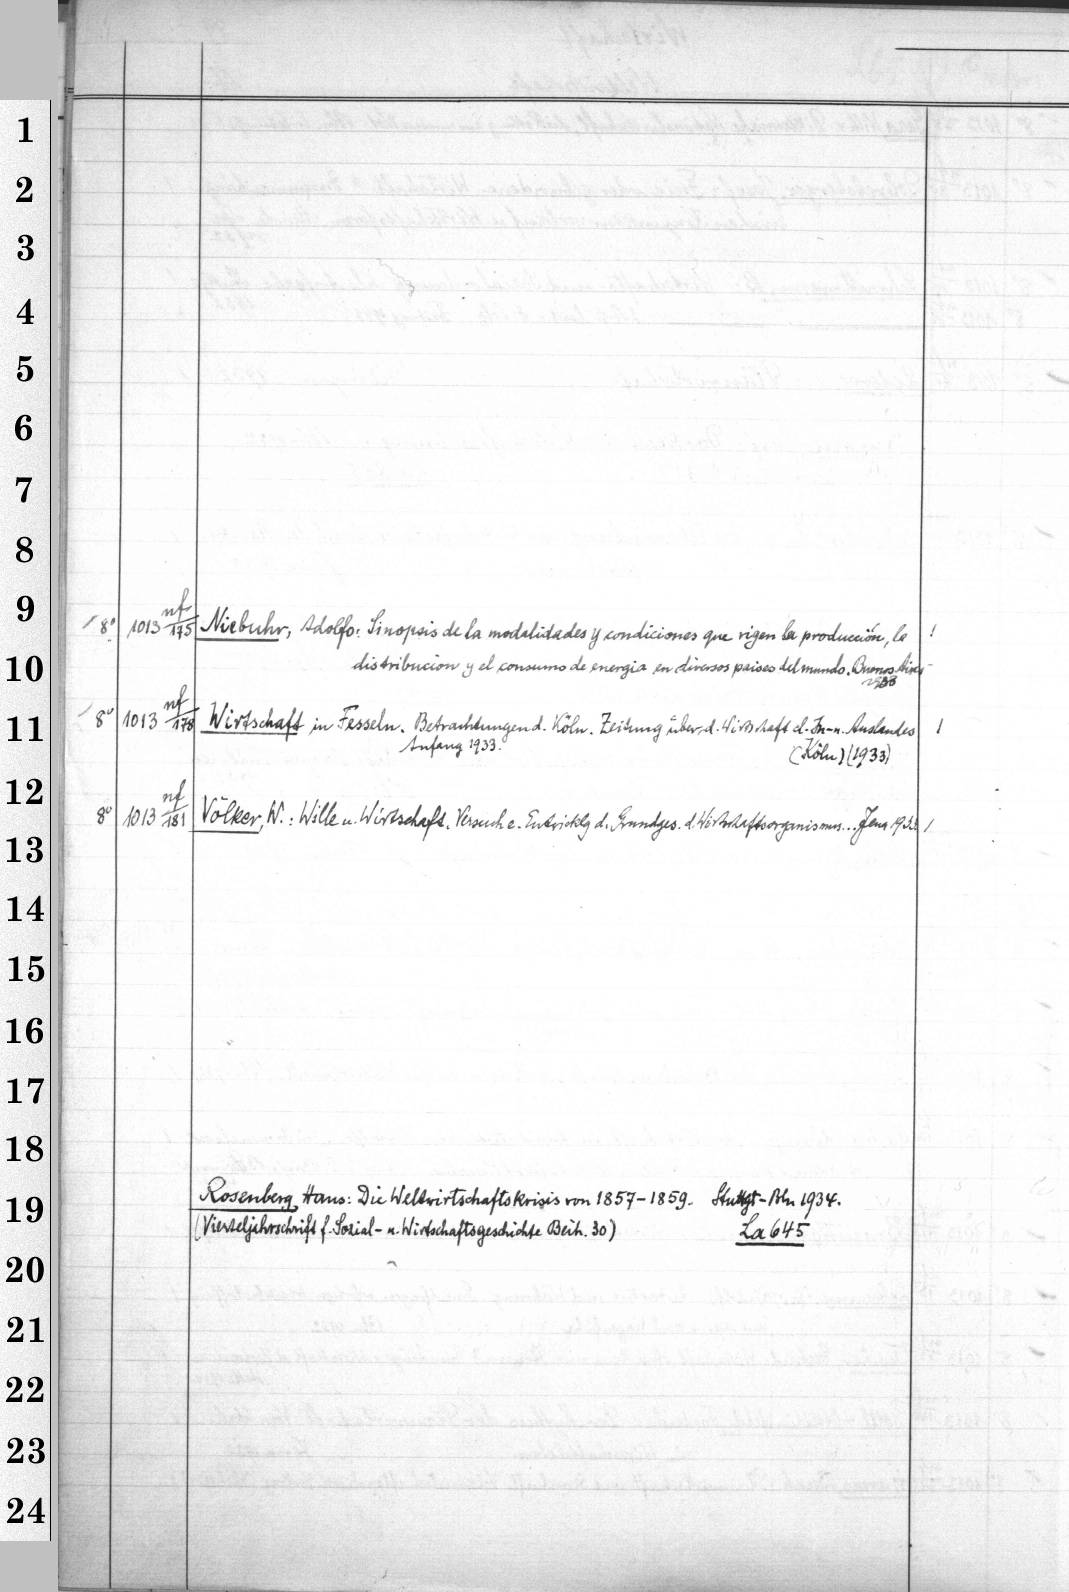 1
2
3
4
5
6
7
8
9
8° 1013 nf/175 Niebuhr, Adolfo: Sinopsis de la modalidades y condiciones que rigen la producción, la !
10
distribucion y el consumo de energia en diversos paises del mundo. Buenos Aires
1933
11
8° 1013 nf/178 Wirtschaft in Fesseln. Betrachtungen d. Köln. Zeitung über d. Wirtschaft d. In- u. Auslandes !
Anfang 1933. (Köln) (1933)
12
8° 1013 nf/181 Völker, W.: Wille u. Wirtschaft. Versuch e. Entwicklg d. Grundges. d. Wirtschaftsorganismus... Jena 1933. /
13
14
15
16
17
18
19
Rosenberg, Hans: Die Weltwirtschaftskrisis von 1857-1859. Stuttgt-Bln 1934.
(Vierteljahrschrift f. Sozial- u. Wirtschaftsgeschichte Beih. 30) La 645
20
21
22
23
24